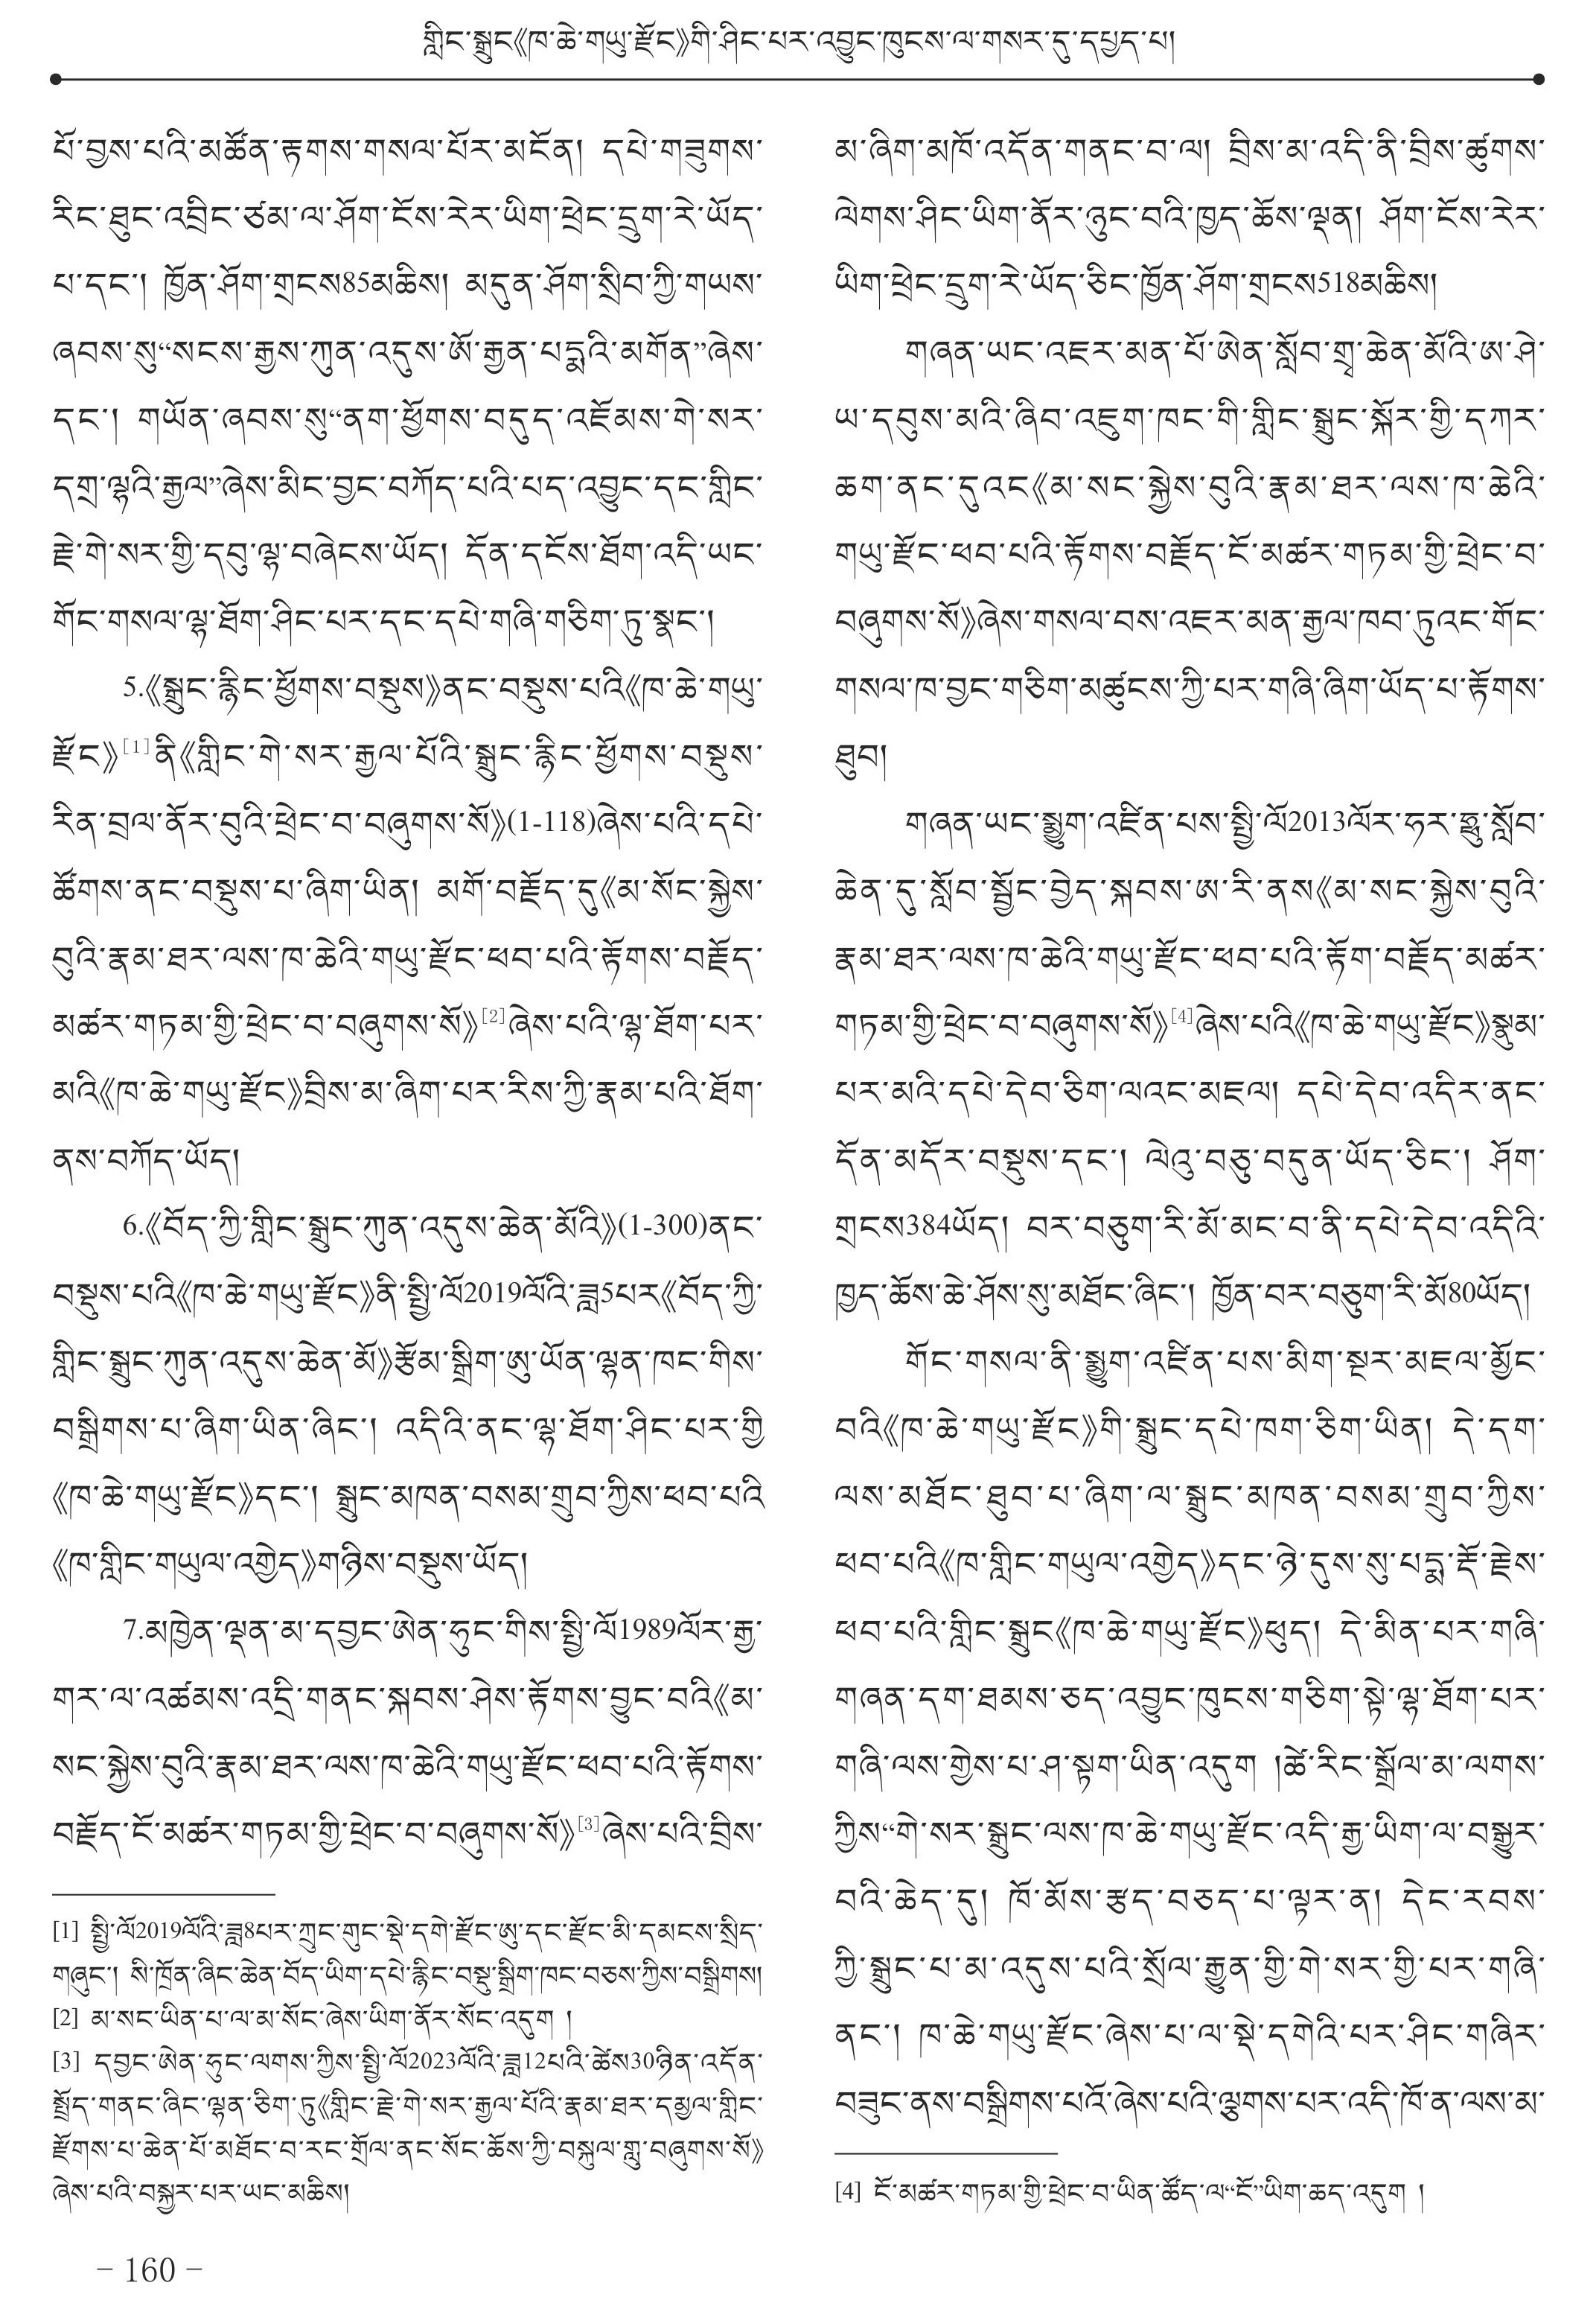 གླིང་སྒྲུང《ཁ་ཆེ་གཡུ་རྫོང》གི་ཤིང་པར་འབྱུང་ཁུངས་ལ་གསར་དུ་དཔྱད་པ།
པོ་བྱས་པའི་མཚོན་རྟགས་གསལ་པོར་མངོན། དཔེ་གཟུགས་
རིང་ཐུང་འབྲིང་ཙམ་ལ་ཤོག་ངོས་རེར་ཡིག་ཕྲེང་དྲུག་རེ་ཡོད་
པ་དང་། ཁྱོན་ཤོག་གྲངས85མཆིས། མདུན་ཤོག་སྲིབ་ཀྱི་གཡས་
ཞབས་སུ“སངས་རྒྱས་ཀུན་འདུས་ཨོ་རྒྱན་པདྨའི་མགོན”ཞེས་
དང་། གཡོན་ཞབས་སུ“ནག་ཕྱོགས་བདུད་འཇོམས་གེ་སར་
དགྲ་ལྷའི་རྒྱལ”ཞེས་མིང་བྱང་བཀོད་པའི་པད་འབྱུང་དང་གླིང་
རྗེ་གེ་སར་གྱི་དབུ་ལྷ་བཞེངས་ཡོད། དོན་དངོས་ཐོག་འདི་ཡང་
གོང་གསལ་ལྷ་ཐོག་ཤིང་པར་དང་དཔེ་གཞི་གཅིག་ཏུ་སྣང་།
5.《སྒྲུང་རྙིང་ཕྱོགས་བསྡུས》ནང་བསྡུས་པའི《ཁ་ཆེ་གཡུ་
རྫོང》[1]ནི《གླིང་གེ་སར་རྒྱལ་པོའི་སྒྲུང་རྙིང་ཕྱོགས་བསྡུས་
རིན་བྲལ་ནོར་བུའི་ཕྲེང་བ་བཞུགས་སོ》(1-118)ཞེས་པའི་དཔེ་
ཚོགས་ནང་བསྡུས་པ་ཞིག་ཡིན། མགོ་བརྗོད་དུ《མ་སོང་སྐྱེས་
བུའི་རྣམ་ཐར་ལས་ཁ་ཆེའི་གཡུ་རྫོང་ཕབ་པའི་རྟོགས་བརྗོད་
མཚར་གཏམ་གྱི་ཕྲེང་བ་བཞུགས་སོ》[2]ཞེས་པའི་ལྷ་ཐོག་པར་
མའི《ཁ་ཆེ་གཡུ་རྫོང》བྲིས་མ་ཞིག་པར་རིས་ཀྱི་རྣམ་པའི་ཐོག་
ནས་བཀོད་ཡོད།
6.《བོད་ཀྱི་གླིང་སྒྲུང་ཀུན་འདུས་ཆེན་མོའི》(1-300)ནང་
བསྡུས་པའི《ཁ་ཆེ་གཡུ་རྫོང》ནི་སྤྱི་ལོ2019ལོའི་ཟླ5པར《བོད་ཀྱི་
གླིང་སྒྲུང་ཀུན་འདུས་ཆེན་མོ》རྩོམ་སྒྲིག་ཨུ་ཡོན་ལྷན་ཁང་གིས་
བསྒྲིགས་པ་ཞིག་ཡིན་ཞིང་། འདིའི་ནང་ལྷ་ཐོག་ཤིང་པར་གྱི
《ཁ་ཆེ་གཡུ་རྫོང》དང་། སྒྲུང་མཁན་བསམ་གྲུབ་ཀྱིས་ཕབ་པའི
《ཁ་གླིང་གཡུལ་འགྱེད》གཉིས་བསྡུས་ཡོད།
7.མཁྱེན་ལྡན་མ་དབྱང་ཨེན་ཧུང་གིས་སྤྱི་ལོ1989ལོར་རྒྱ་
གར་ལ་འཚམས་འདྲི་གནང་སྐབས་ཤེས་རྟོགས་བྱུང་བའི《མ་
སང་སྐྱེས་བུའི་རྣམ་ཐར་ལས་ཁ་ཆེའི་གཡུ་རྫོང་ཕབ་པའི་རྟོགས་
བརྗོད་ངོ་མཚར་གཏམ་གྱི་ཕྲེང་བ་བཞུགས་སོ》[3]ཞེས་པའི་བྲིས་
[1] སྤྱི་ལོ2019ལོའི་ཟླ8པར་ཀྲུང་གུང་སྡེ་དགེ་རྫོང་ཨུ་དང་རྫོང་མི་དམངས་སྲིད་
གཞུང་། སི་ཁྲོན་ཞིང་ཆེན་བོད་ཡིག་དཔེ་རྙིང་བསྡུ་སྒྲིག་ཁང་བཅས་ཀྱིས་བསྒྲིགས།
[2] མ་སང་ཡིན་པ་ལ་མ་སོང་ཞེས་ཡིག་ནོར་སོང་འདུག །
[3] དབྱང་ཨེན་ཧུང་ལགས་ཀྱིས་སྤྱི་ལོ2023ལོའི་ཟླ12པའི་ཚེས30ཉིན་འདོན་
སྤྲོད་གནང་ཞིང་ལྷན་ཅིག་ཏུ《གླིང་རྗེ་གེ་སར་རྒྱལ་པོའི་རྣམ་ཐར་དམྱལ་གླིང་
རྫོགས་པ་ཆེན་པོ་མཐོང་བ་རང་གྲོལ་ནང་སོང་ཆོས་ཀྱི་བསྐུལ་གླུ་བཞུགས་སོ》
ཞེས་པའི་བསྐྱར་པར་ཡང་མཆིས།
མ་ཞིག་མཁོ་འདོན་གནང་བ་ལ། བྲིས་མ་འདི་ནི་བྲིས་ཚུགས་
ལེགས་ཤིང་ཡིག་ནོར་ཉུང་བའི་ཁྱད་ཆོས་ལྡན། ཤོག་ངོས་རེར་
ཡིག་ཕྲེང་དྲུག་རེ་ཡོད་ཅིང་ཁྱོན་ཤོག་གྲངས518མཆིས།
གཞན་ཡང་འཇར་མན་པོ་ཨེན་སློབ་གྲྭ་ཆེན་མོའི་ཨ་ཤེ་
ཡ་དབུས་མའི་ཞིབ་འཇུག་ཁང་གི་གླིང་སྒྲུང་སྐོར་གྱི་དཀར་
ཆག་ནང་དུའང《མ་སང་སྐྱེས་བུའི་རྣམ་ཐར་ལས་ཁ་ཆེའི་
གཡུ་རྫོང་ཕབ་པའི་རྟོགས་བརྗོད་ངོ་མཚར་གཏམ་གྱི་ཕྲེང་བ་
བཞུགས་སོ》ཞེས་གསལ་བས་འཇར་མན་རྒྱལ་ཁབ་ཏུའང་གོང་
གསལ་ཁ་བྱང་གཅིག་མཚུངས་ཀྱི་པར་གཞི་ཞིག་ཡོད་པ་རྟོགས་
ཐུབ།
གཞན་ཡང་སྨྱུག་འཛིན་པས་སྤྱི་ལོ2013ལོར་ཧར་ཧྥུ་སློབ་
ཆེན་དུ་སློབ་སྦྱོང་བྱེད་སྐབས་ཨ་རི་ནས《མ་སང་སྐྱེས་བུའི་
རྣམ་ཐར་ལས་ཁ་ཆེའི་གཡུ་རྫོང་ཕབ་པའི་རྟོག་བརྗོད་མཚར་
གཏམ་གྱི་ཕྲེང་བ་བཞུགས་སོ》[4]ཞེས་པའི《ཁ་ཆེ་གཡུ་རྫོང》སྣུམ་
པར་མའི་དཔེ་དེབ་ཅིག་ལའང་མཇལ། དཔེ་དེབ་འདིར་ནང་
དོན་མདོར་བསྡུས་དང་། ལེའུ་བཅུ་བདུན་ཡོད་ཅིང་། ཤོག་
གྲངས384ཡོད། བར་བཅུག་རི་མོ་མང་བ་ནི་དཔེ་དེབ་འདིའི་
ཁྱད་ཆོས་ཆེ་ཤོས་སུ་མཐོང་ཞིང་། ཁྱོན་བར་བཅུག་རི་མོ80ཡོད།
གོང་གསལ་ནི་སྨྱུག་འཛིན་པས་མིག་སྔར་མཇལ་མྱོང་
བའི《ཁ་ཆེ་གཡུ་རྫོང》གི་སྒྲུང་དཔེ་ཁག་ཅིག་ཡིན། དེ་དག་
ལས་མཐོང་ཐུབ་པ་ཞིག་ལ་སྒྲུང་མཁན་བསམ་གྲུབ་ཀྱིས་
ཕབ་པའི《ཁ་གླིང་གཡུལ་འགྱེད》དང་ཉེ་དུས་སུ་པདྨ་རྡོ་རྗེས་
ཕབ་པའི་གླིང་སྒྲུང《ཁ་ཆེ་གཡུ་རྫོང》ཕུད། དེ་མིན་པར་གཞི་
གཞན་དག་ཐམས་ཅད་འབྱུང་ཁུངས་གཅིག་སྟེ་ལྷ་ཐོག་པར་
གཞི་ལས་གྱེས་པ་ཤ་སྟག་ཡིན་འདུག །ཚེ་རིང་སྒྲོལ་མ་ལགས་
ཀྱིས“གེ་སར་སྒྲུང་ལས་ཁ་ཆེ་གཡུ་རྫོང་འདི་རྒྱ་ཡིག་ལ་བསྒྱུར་
བའི་ཆེད་དུ། ཁོ་མོས་རྩད་བཅད་པ་ལྟར་ན། དེང་རབས་
ཀྱི་སྒྲུང་པ་མ་འདུས་པའི་སྲོལ་རྒྱུན་གྱི་གེ་སར་གྱི་པར་གཞི་
ནང་། ཁ་ཆེ་གཡུ་རྫོང་ཞེས་པ་ལ་སྡེ་དགེའི་པར་ཤིང་གཞིར་
བཟུང་ནས་བསྒྲིགས་པའོ་ཞེས་པའི་ལྕགས་པར་འདི་ཁོ་ན་ལས་མ་
[4] ངོ་མཚར་གཏམ་གྱི་ཕྲེང་བ་ཡིན་ཚོད་ལ“ངོ”ཡིག་ཆད་འདུག །
– 160 –